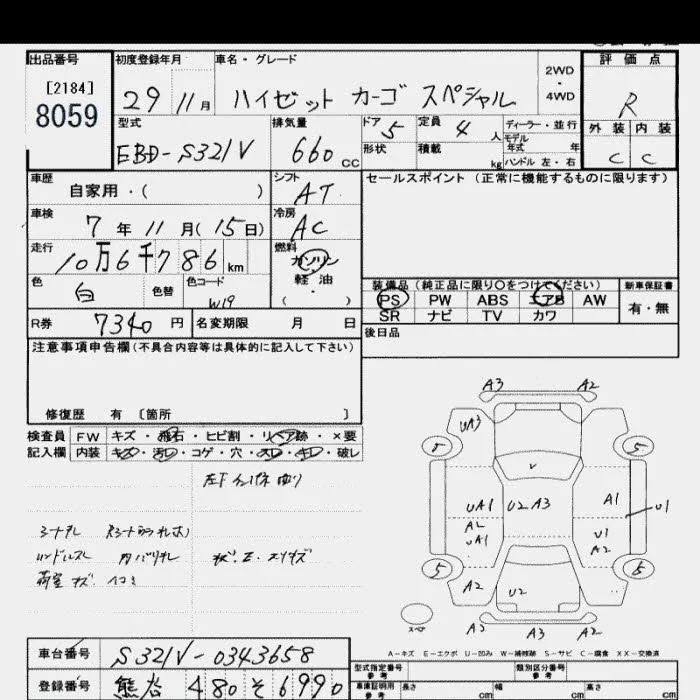 出品番号 初度登録年月 車名・グレード 評価点
[2184]
8059
29 11月 ハイゼット カーゴ スペシャル 2WD・4WD R
型式 排気量 ドア 5 定員 4人 ディーラー・並行 外装 内装
EBD-S321V 660cc 形状 積載 kg モデル年式 年 ハンドル 左・右 C C
車歴 自家用・( ) シフト AT セールスポイント (正常に機能するものに限ります)
車検 7年 11月(15日) 冷房 AC
走行 10万6千786km 燃料 ガソリン 軽油 ( )
色 白 色替 色コード W19 装備品(純正品に限り○をつけてください) 新車保証書
PS PW ABS エアB AW 有・無
SR ナビ TV カワ
R券 7340円 名変期限 月 日 後日品
注意事項申告欄(不具合内容等は具体的に記入して下さい)
修復歴 有 〔箇所 〕
検査員 FW キズ・飛石・ヒビ割・リペア跡・×要
記入欄 内装 キズ・汚レ・コゲ・穴・スレ・キレ・破レ
A3 A2
UA3
5 5
V
UA1 U2 A3 A1 U1
A2 U1
UA1 A2
5 5
A2 U2
スペア
A2 A3 A3
A-キズ E-エクボ U-凹み W-補修跡 S-サビ C-腐食 XX-交換済
車台番号 S321V-0343658
型式指定番号 参考 類別区分番号 参考
登録番号 熊谷 480 そ 6990 車庫証明用 参考 長さ cm 幅 cm 高さ cm